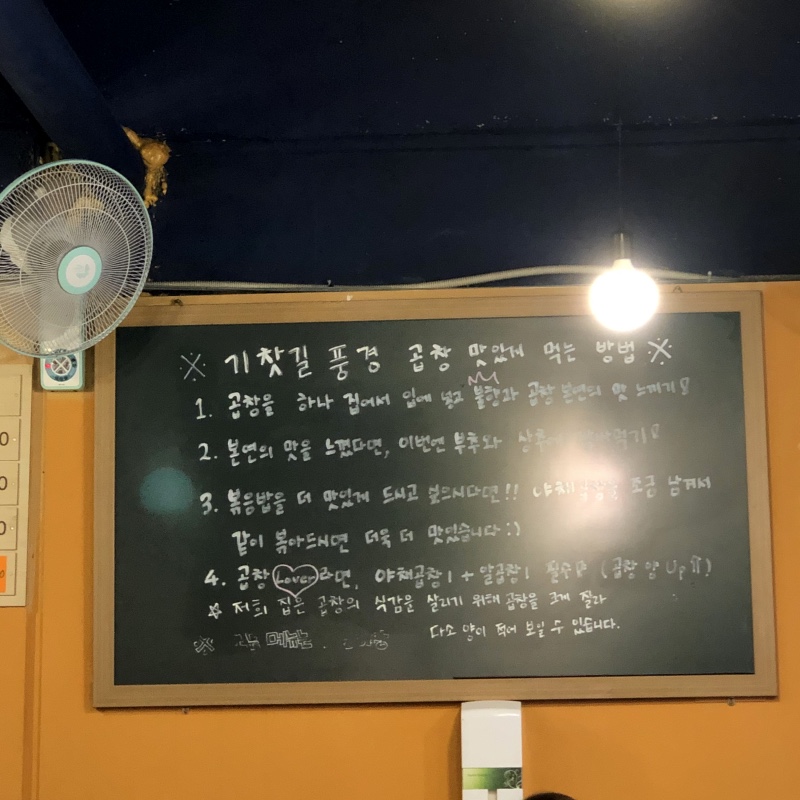 ※ 기찻길 풍경 곱창 맛있게 먹는 방법 ※
1. 곱창을 하나 집어서 입에 넣고 불향과 곱창 본연의 맛 느끼기!
2. 본연의 맛을 느꼈다면, 이번엔 부추와 상추에
3. 볶음밥을 더 맛있게 드시고 싶으시다면!! 야채곱창을 조금 남겨서
같이 볶아드시면 더욱 더 맛있습니다 :)
4. 곱창 Lover라면, 야채곱창1 + 알곱창1 필수! (곱창 양 Up⇈)
☆ 저희 집은 곱창의 식감을 살리기 위해 곱창을 크게 잘라
다소 양이 적어 보일 수 있습니다.
※ 메뉴는
0
0
0
0